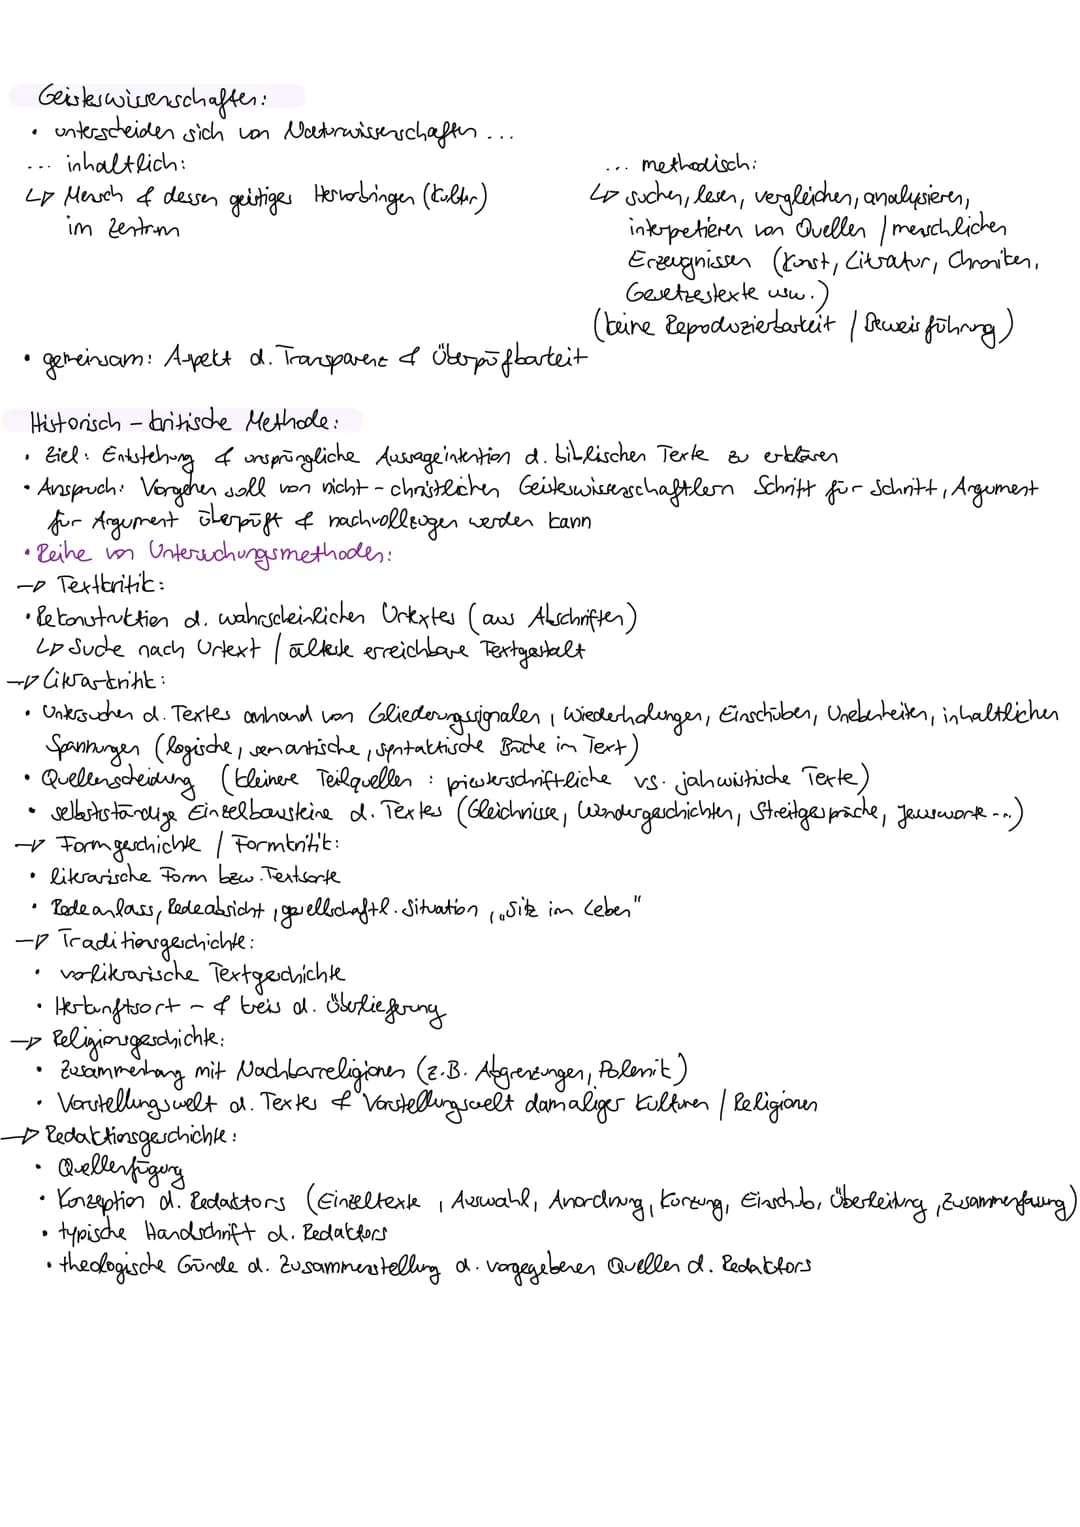 Geisteswissenschaften:
• unterscheiden sich von Naturwissenschaften ...
... inhaltlich:
↳ Mensch & dessen geistiges Hervorbingen (Kultur)
im Zentrum
... methodisch:
↳ suchen, lesen, vergleichen, analysieren,
interpetieren von Quellen / menschlichen
Erzeugnissen (Kunst, Literatur, Chroniken,
Gesetzestexte usw.)
(keine Reproduzierbarkeit / Beweisführung)
• gemeinsam: Aspekt d. Transparenz & Überpüfbarkeit
Historisch – kritische Methode:
• Ziel: Entstehung & ursprüngliche Aussageintention d. biblischen Texte zu erklären
• Anspruch: Vorgehen soll von nicht – christlichen Geisteswissenschaftlern Schritt für Schritt, Argument
für Argument überpüft & nachvollzogen werden kann
• Reihe von Untersuchungsmethoden:
→ Textkritik:
• Rekonstruktion d. wahrscheinlichen Urtextes (aus Abschriften)
↳ Suche nach Urtext / älteste erreichbare Textgestalt
→ Literarkritik:
• Untersuchen d. Textes anhand von Gliederungssignalen, Wiederholungen, Einschüben, Unebenheiten, inhaltlichen
Spannungen (logische, semantische, syntaktische Brüche im Text)
• Quellenscheidung (kleinere Teilquellen : priesterschriftliche vs. jahwistische Texte)
• selbstständige Einzelbausteine d. Textes (Gleichnisse, Wundergeschichten, Streitgespräche, Jesusworte ...)
→ Formgeschichte / Formkritik:
• literarische Form bzw. Textsorte
• Redeanlass, Redeabsicht, gesellschaftl. Situation, „Sitz im Leben"
→ Traditionsgeschichte:
• vorliterarische Textgeschichte
• Herkunftsort – & kreis d. Überlieferung
→ Religionsgeschichte:
• Zusammenhang mit Nachbarreligionen (z.B. Abgrenzungen, Polemik)
• Vorstellungswelt d. Textes & Vorstellungswelt damaliger Kulturen / Religionen
→ Redaktionsgeschichte:
• Quellenfügung
• Konzeption d. Redaktors (Einzeltexte, Auswahl, Anordnung, Kürzung, Einschub, Überleitung, Zusammenfassung)
• typische Handschrift d. Redaktors
• theologische Gründe d. Zusammenstellung d. vorgegebenen Quellen d. Redaktors